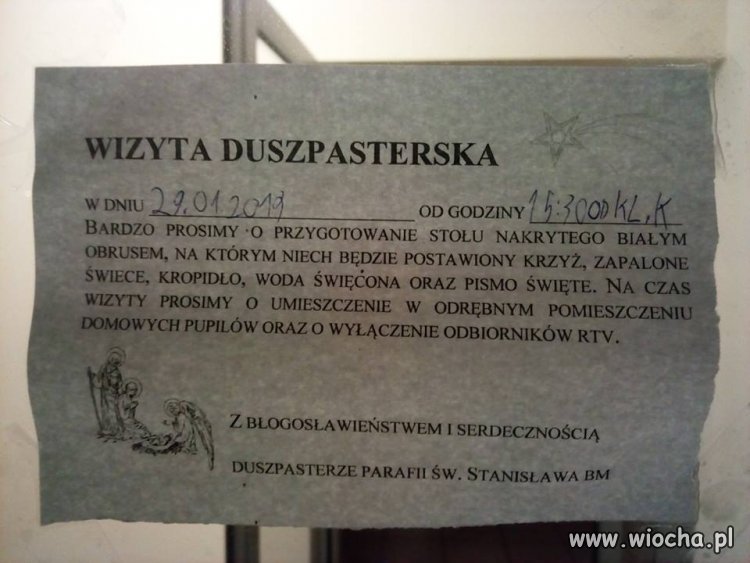 WIZYTA DUSZPASTERSKA
W DNIU 29.01 2019 OD GODZINY 15:30 OD KL.K
BARDZO PROSIMY O PRZYGOTOWANIE STOŁU NAKRYTEGO BIAŁYM
OBRUSEM, NA KTÓRYM NIECH BĘDZIE POSTAWIONY KRZYŻ, ZAPALONE
ŚWIECE, KROPIDŁO, WODA ŚWIĘCONA ORAZ PISMO ŚWIĘTE. NA CZAS
WIZYTY PROSIMY O UMIESZCZENIE W ODRĘBNYM POMIESZCZENIU
DOMOWYCH PUPILÓW ORAZ O WYŁĄCZENIE ODBIORNIKÓW RTV.
Z BŁOGOSŁAWIEŃSTWEM I SERDECZNOŚCIĄ
DUSZPASTERZE PARAFII ŚW. STANISŁAWA BM
www.wiocha.pl